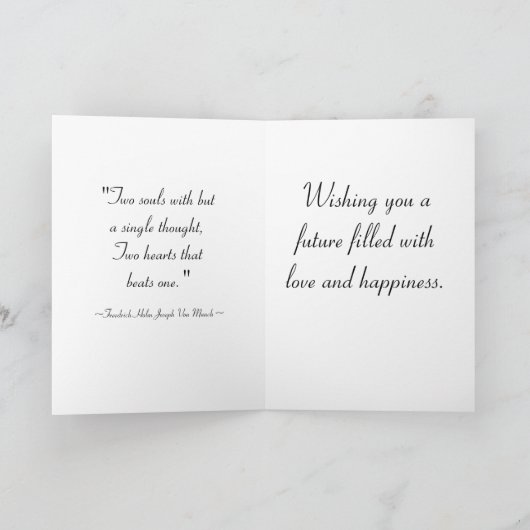 "Two souls with but
a single thought,
Two hearts that
beats one."
~Friedrich Halm Joseph Von Munch~
Wishing you a
future filled with
love and happiness.